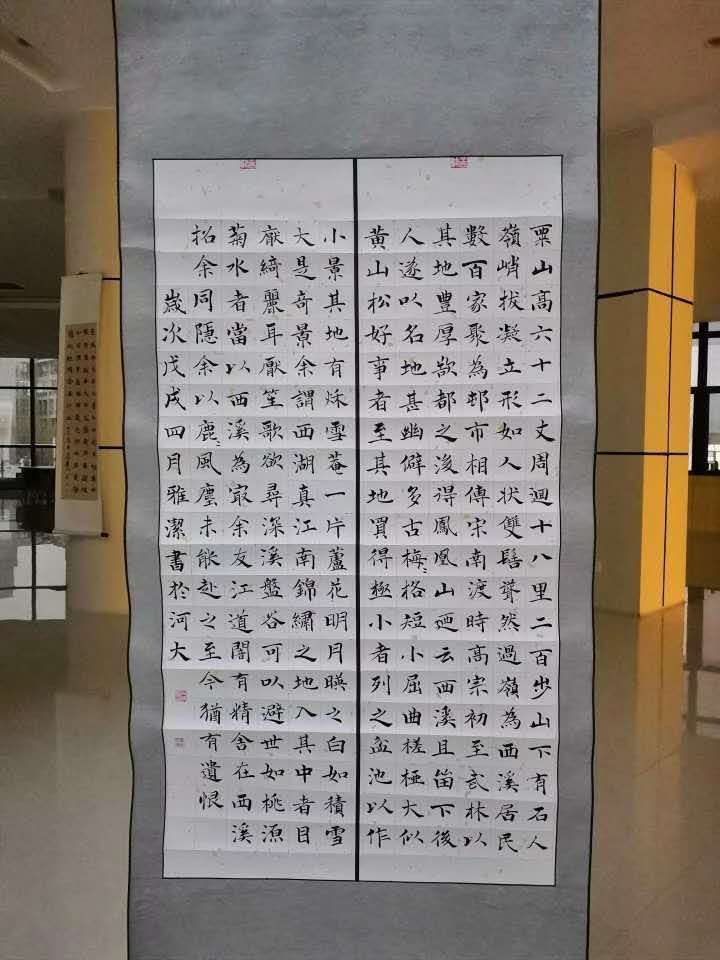 粟山高六十二丈周迴十八里二百步山下有石人
嶺峭拔凝立形如人状雙髻聳然過嶺為西溪居民
數百家聚為邨市相傳宋南渡時高宗初至武林以
其地豐厚欲都之後得鳳凰山迺云西溪且留下後
人遂以名地甚幽僻多古梅〻格短小屈曲槎椏大似
黄山松好事者至其地買得極小者列之盆池以作
小景其地有秌雪菴一片蘆花明月暎之白如積雪
大是奇景余謂西湖真江南錦繡之地入其中者目
厭綺麗耳厭笙歌欲尋深溪盤谷可以避世如桃源
菊水者當以西溪為冣余友江道闇有精舍在西溪
招余同隱余以鹿〻風塵未能赴之至今猶有遺恨
歲次戊戌四月雅潔書於河大